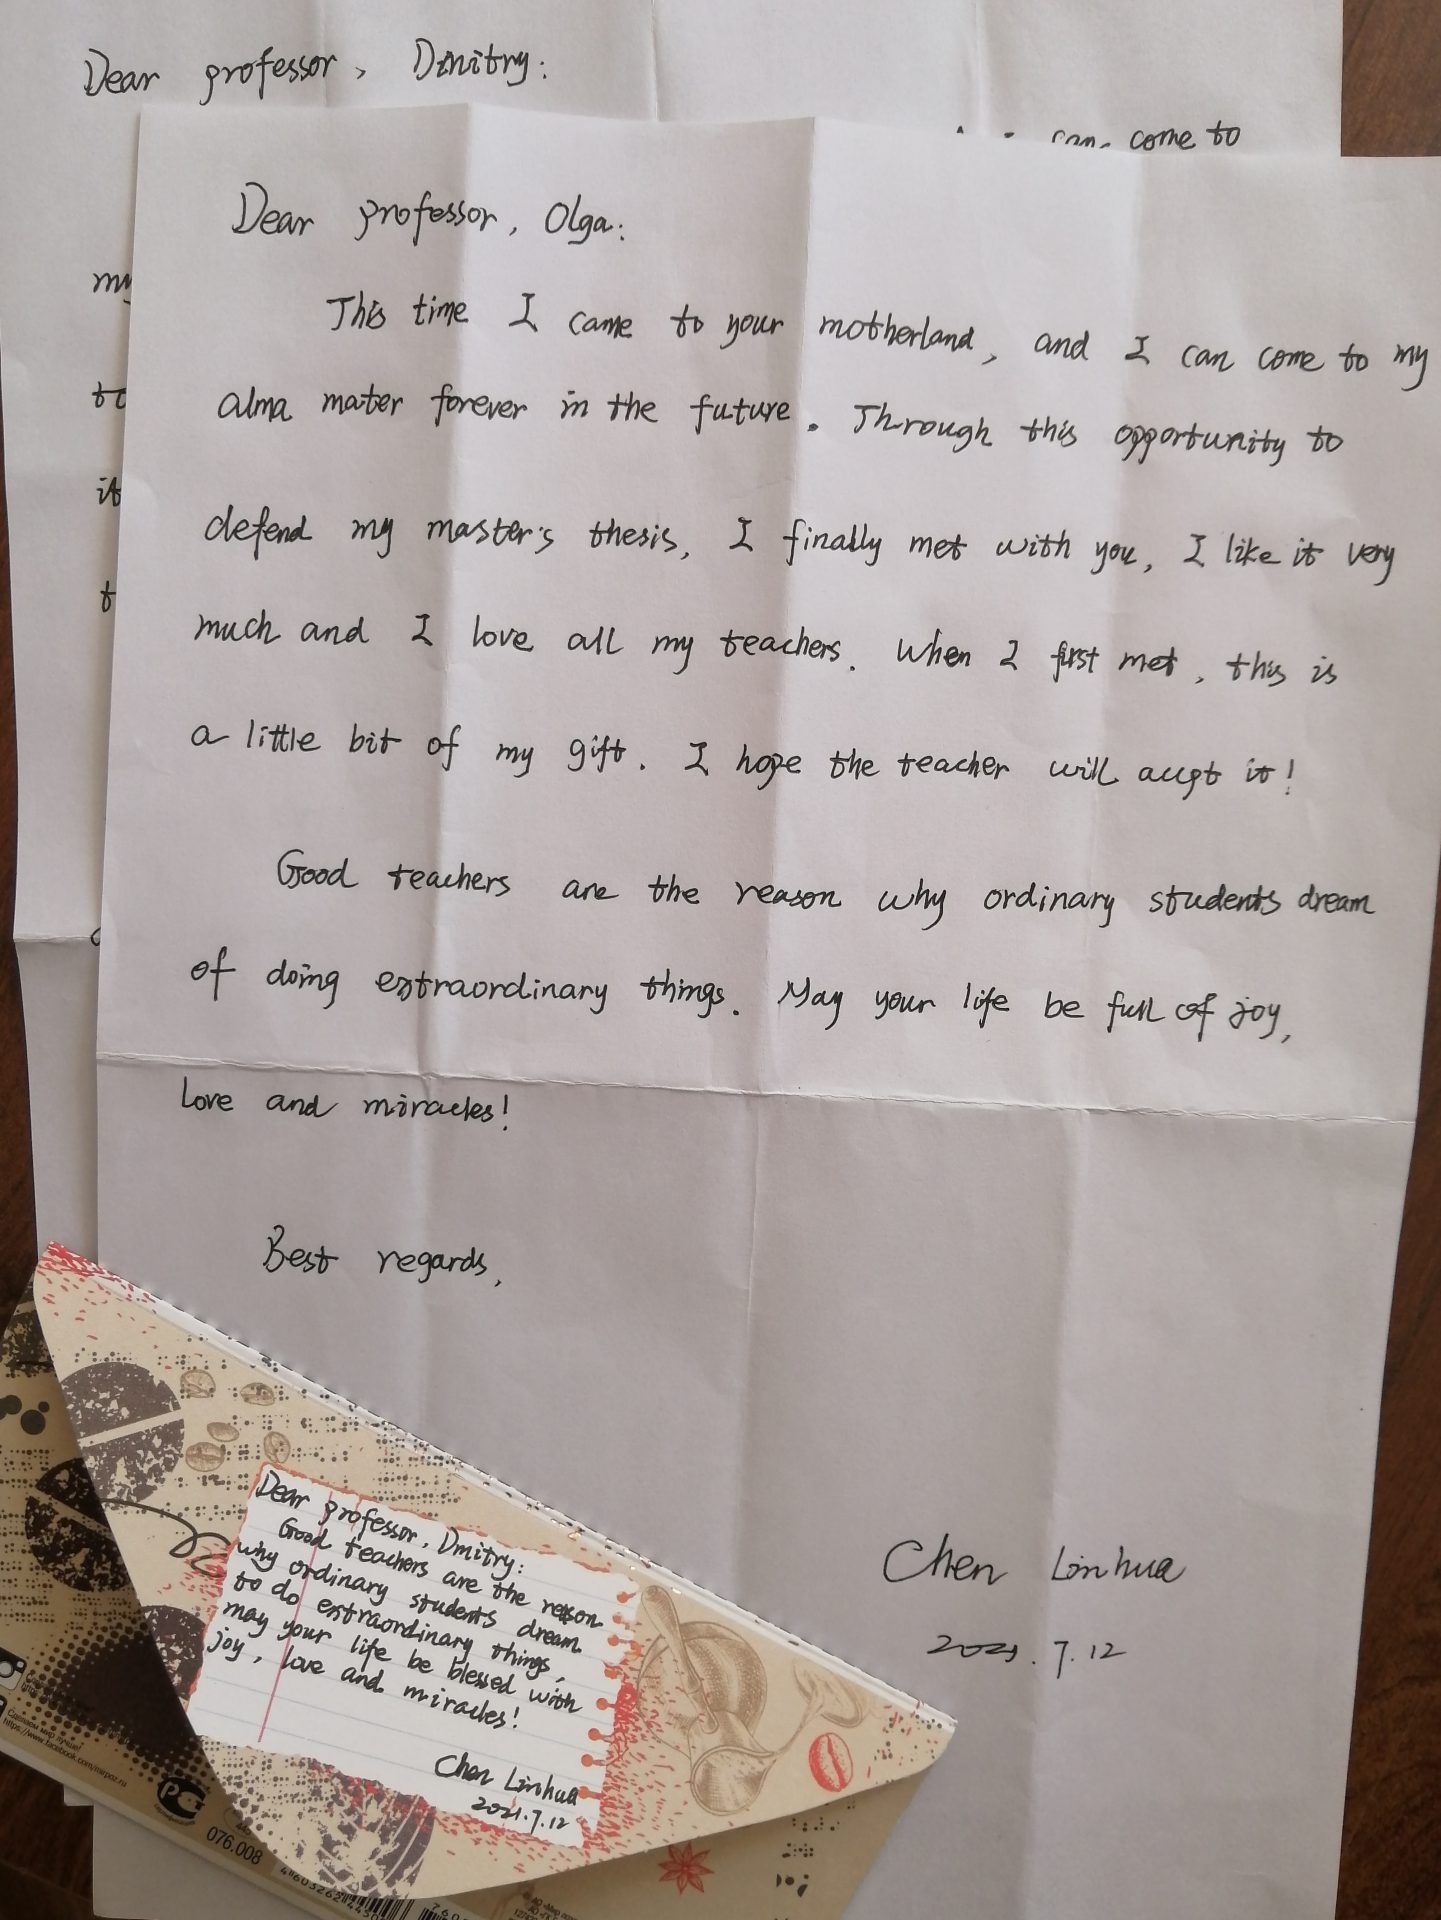 Dear professor, Dmitry:
can come to
my
it
Dear professor, Olga:
This time I came to your motherland, and I can come to my
alma mater forever in the future. Through this opportunity to
defend my master's thesis, I finally met with you, I like it very
much and I love all my teachers. When I first met, this is
a little bit of my gift. I hope the teacher will accept it!
Good teachers are the reason why ordinary students dream
of doing extraordinary things. May your life be full of joy,
love and miracles!
Best regards,
Chen Linhua
2021.7.12
Dear professor, Dmitry:
Good teachers are the reason
why ordinary students dream
to do extraordinary things,
may your life be blessed with
joy, love and miracles!
Chen Linhua
2021.7.12
Сделаем мир лучше!
https://www.facebook.com/mirpoz.ru
076.008